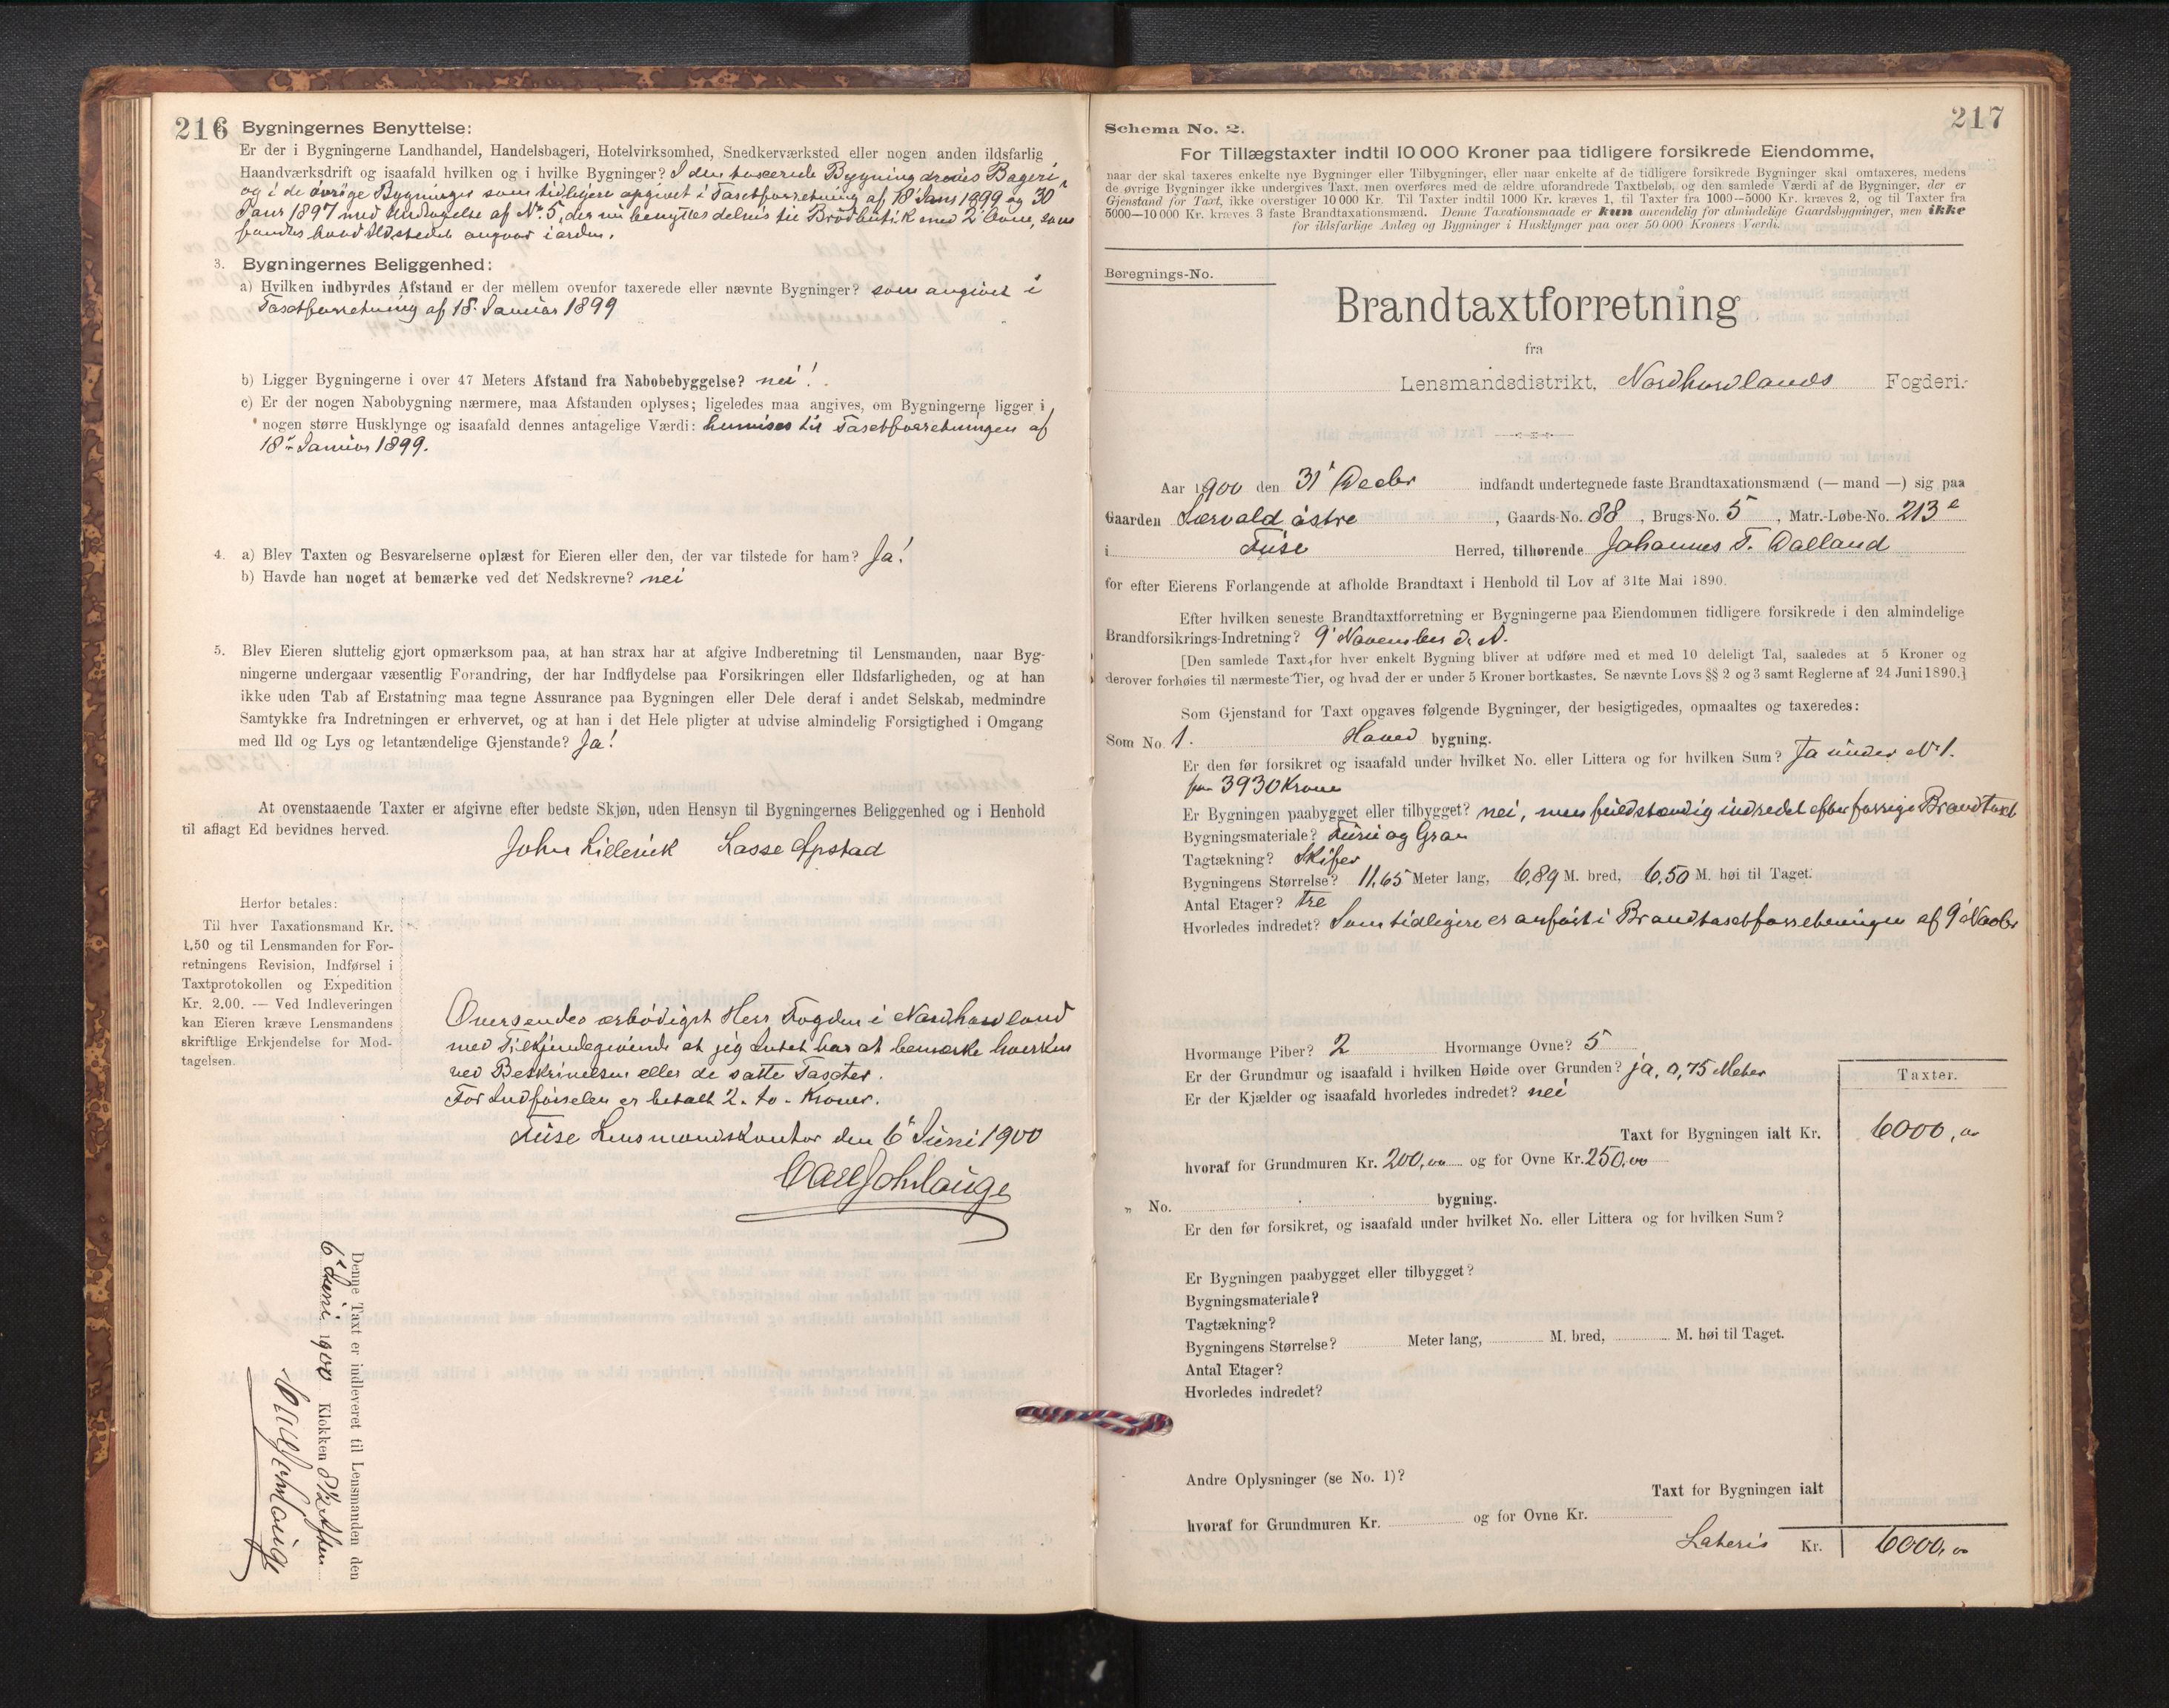 216
Bygningernes Benyttelse:
Er der i Bygningerne Landhandel, Handelsbageri, Hotelvirksomhed, Snedkerværksted eller nogen anden ildsfarlig
Haandværksdrift og isaafald hvilken og i hvilke Bygninger? I den taxerede Bygning drives Bageri,
og i de øvrige Bygninger som tidligere opgivet i Taxtforretning af 18 Janr 1899 og 30
Janr 1897 med Undtagelse af No. 5, der nu benyttes delvis til Brødbutik med 2 Ovne, som
fandtes hvad Ildstedet angaar i orden.
3. Bygningernes Beliggenhed:
a) Hvilken indbyrdes Afstand er der mellem ovenfor taxerede eller nævnte Bygninger? som angivet i
Taxtforretning af 18. Januar 1899
b) Ligger Bygningerne i over 47 Meters Afstand fra Nabobebyggelse? nei!
c) Er der nogen Nabobygning nærmere, maa Afstanden oplyses; ligeledes maa angives, om Bygningerne ligger i
nogen større Husklynge og isaafald dennes antagelige Værdi: henvises til Taxtforretningen af
18 Januar 1899.
4. a) Blev Taxten og Besvarelserne oplæst for Eieren eller den, der var tilstede for ham? Ja!
b) Havde han noget at bemærke ved det Nedskrevne? nei
5. Blev Eieren sluttelig gjort opmærksom paa, at han strax har at afgive Indberetning til Lensmanden, naar Byg-
ningerne undergaar væsentlig Forandring, der har Indflydelse paa Forsikringen eller Ildsfarligheden, og at han
ikke uden Tab af Erstatning maa tegne Assurance paa Bygningen eller Dele deraf i andet Selskab, medmindre
Samtykke fra Indretningen er erhvervet, og at han i det Hele pligter at udvise almindelig Forsigtighed i Omgang
med Ild og Lys og letantændelige Gjenstande? Ja!
At ovenstaaende Taxter er afgivne efter bedste Skjøn, uden Hensyn til Bygningernes Beliggenhed og i Henhold
til aflagt Ed bevidnes herved.
John Lillevik Lasse Apstad
Herfor betales:
Til hver Taxationsmand Kr.
1.50 og til Lensmanden for For-
retningens Revision, Indførsel i
Taxtprotokollen og Expedition
Kr. 2.00. — Ved Indleveringen
kan Eieren kræve Lensmandens
skriftlige Erkjendelse for Mod-
tagelsen.
Oversendes ærbødigst Herr Fogden i Nordhordland
med Tilkjendegivende at jeg Intet har at bemærke hverken
ved Beskrivelsen eller de satte Taxter.
For Indførselen er betalt 2. to. Kroner.
Fuse Lensmandskontor den 6 Juni 1900
Carl Joh Lauge
Denne Taxt er indleveret til Lensmanden den
6 Juni 1900 Klokken 8½ Aften
217
Schema No. 2.
For Tillægstaxter indtil 10 000 Kroner paa tidligere forsikrede Eiendomme,
naar der skal taxeres enkelte nye Bygninger eller Tilbygninger, eller naar enkelte af de tidligere forsikrede Bygninger skal omtaxeres, medens
de øvrige Bygninger ikke undergives Taxt, men overføres med de ældre uforandrede Taxtbeløb, og den samlede Værdi af de Bygninger, der er
Gjenstand for Taxt, ikke overstiger 10 000 Kr. Til Taxter indtil 1000 Kr. kræves 1, til Taxter fra 1000—5000 Kr. kræves 2, og til Taxter fra
5000—10 000 Kr. kræves 3 faste Brandtaxationsmænd. Denne Taxationsmaade er kun anvendelig for almindelige Gaardsbygninger, men ikke
for ildsfarlige Anlæg og Bygninger i Husklynger paa over 50 000 Kroners Værdi.
Beregnings-No.
Brandtaxtforretning
fra
Lensmandsdistrikt, Nordhordlands Fogderi.
Aar 1900 den 31 Decbr indfandt undertegnede faste Brandtaxationsmænd (— mand —) sig paa
Gaarden Særvold østre, Gaards-No. 88, Brugs-No. 5, Matr.-Løbe-No. 213
i Fuse Herred, tilhørende Johannes T. Dalland
for efter Eierens Forlangende at afholde Brandtaxt i Henhold til Lov af 31te Mai 1890.
Efter hvilken seneste Brandtaxtforretning er Bygningerne paa Eiendommen tidligere forsikrede i den almindelige
Brandforsikrings-Indretning? 9 November d. A.
[Den samlede Taxt for hver enkelt Bygning bliver at udføre med et med 10 deleligt Tal, saaledes at 5 Kroner og
derover forhøies til nærmeste Tier, og hvad der er under 5 Kroner bortkastes. Se nævnte Lovs §§ 2 og 3 samt Reglerne af 24 Juni 1890.]
Som Gjenstand for Taxt opgaves følgende Bygninger, der besigtigedes, opmaaltes og taxeredes:
Som No. 1. Hoved bygning.
Er den før forsikret og isaafald under hvilket No. eller Littera og for hvilken Sum? Ja under No 1.
for 3930 Krone
Er Bygningen paabygget eller tilbygget? nei, men fuldstændig indredet efter forrige Brandtaxt
Bygningsmateriale? Furu og Gran
Tagtækning? Skifer
Bygningens Størrelse? 11,65 Meter lang, 6,89 M. bred, 6,50 M. høi til Taget.
Antal Etager? tre
Hvorledes indredet? Som tidligere er anført i Brandtaxtforretningen af 9 Novbr
Hvormange Piber? 2 Hvormange Ovne? 5
Er der Grundmur og isaafald i hvilken Høide over Grunden? ja, 0,75 Meter
Er der Kjælder og isaafald hvorledes indredet? nei
Taxter.
Taxt for Bygningen ialt Kr. 6000,00
hvoraf for Grundmuren Kr. 200,00 og for Ovne Kr. 250,00
" No. bygning.
Er den før forsikret, og isaafald under hvilket No. eller Littera og for hvilken Sum?
Er Bygningen paabygget eller tilbygget?
Bygningsmateriale?
Tagtækning?
Bygningens Størrelse? Meter lang, M. bred, M. høi til Taget.
Antal Etager?
Hvorledes indredet?
Andre Oplysninger (se No. 1)?
Taxt for Bygningen ialt
hvoraf for Grundmuren Kr. og for Ovne Kr.
Lateris Kr. 6000,00